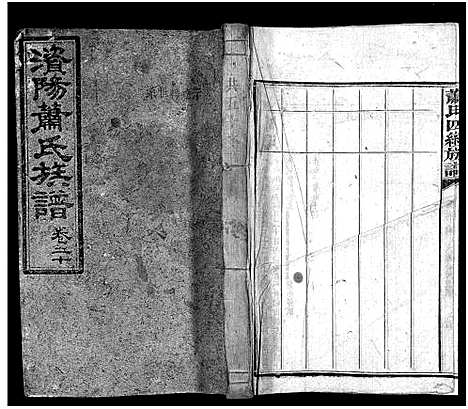 濱陽蕭氏族譜
卷二十
共五
蕭氏四續族譜